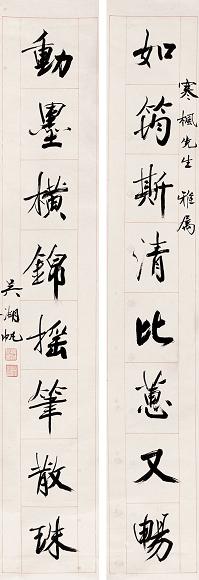 寒楓先生 雅屬
如筠斯清比蕙又暢
動墨橫錦搖筆散珠
吳湖帆